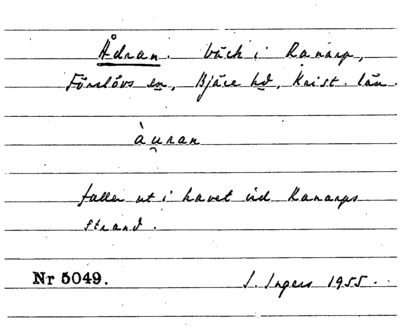 Ådran. bäck i Ranarp,
Förslövs sn, Bjäre hd, Krist. län.
àu̯ran
faller ut i havet vid Ranarps
strand.
Nr 5049. I. Ingers 1955.